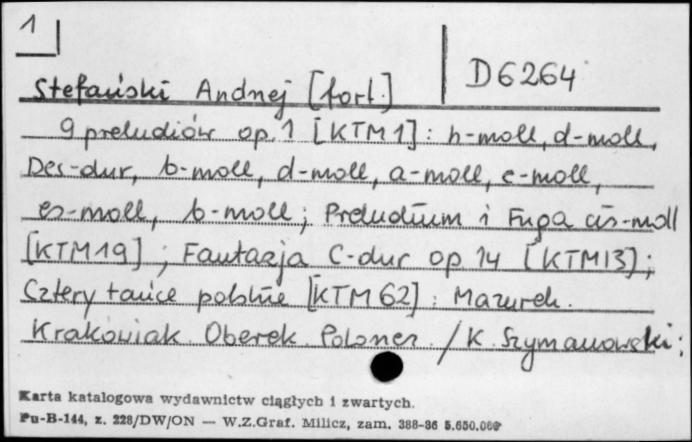 1
D6264
Stefański Andrzej [fort.]
9 preludiów op. 1 [KTM1]: h-moll, d-moll,
Des-dur, b-moll, d-moll, a-moll, c-moll,
es-moll, b-moll; Preludium i Fuga cis-moll
[KTM19]; Fantazja C-dur op. 14 [KTM13];
Cztery tańce polskie [KTM62]: Mazurek.
Krakowiak. Oberek. Polonez. / K. Szymanowski:
Karta katalogowa wydawnictw ciągłych i zwartych.
Pu-B-144, z. 228/DW/ON — W.Z.Graf. Milicz, zam. 388-86 5.650.000